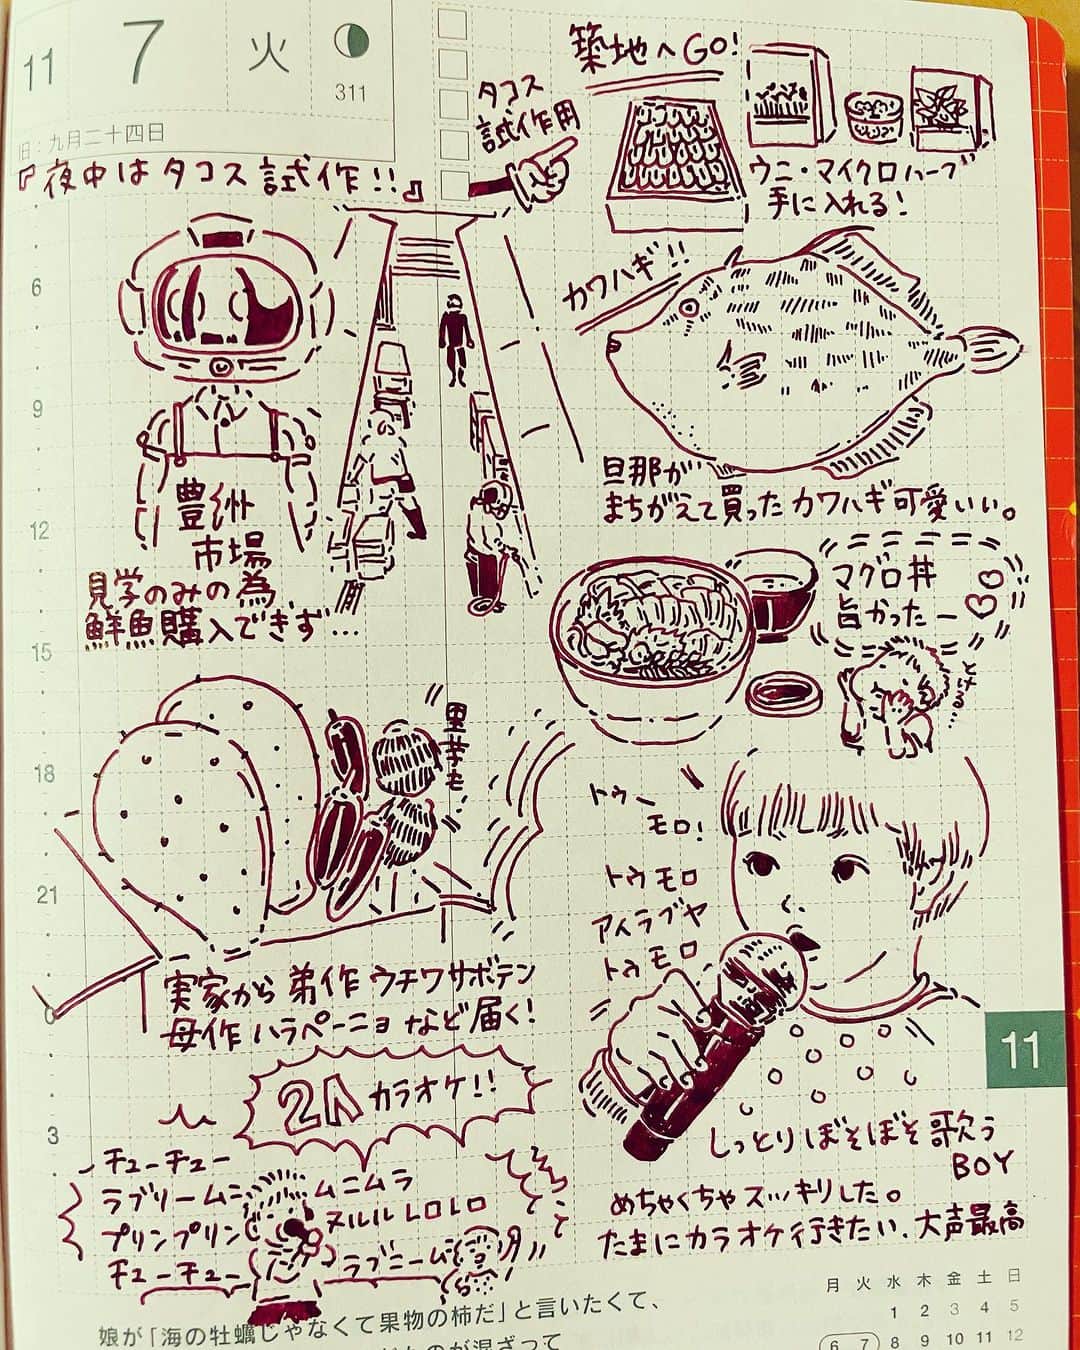 11 7 火
311
旧：九月二十四日
『夜中はタコス試作!!』
タコス
試作用
築地へGO!
ウニ・マイクロハーブ
手に入れる!
カワハギ!!
旦那が
まちがえて買ったカワハギ可愛いい。
豊洲
市場
見学のみの為
鮮魚購入できず…
マグロ丼
旨かったー
とける…
6
9
12
15
18
21
0
3
里芋も!
実家から弟作ウチワサボテン
母作ハラペーニョなど届く!
トゥー
モロ!
トゥモロ
アイラブヤ
トゥモロ
11
しっとりぼそぼそ歌う
BOY
2人カラオケ!!
チューチュー
ラブリームニ ムニムラ
プリンプリン ヌルル レロレロ
チューチュー ラブニーム
めちゃくちゃスッキリした。
たまにカラオケ行きたい、大声最高
月 火 水 木 金 土 日
1 2 3 4 5
6 7 8 9 10 11 12
娘が「海の牡蠣じゃなくて果物の柿だ」と言いたくて、